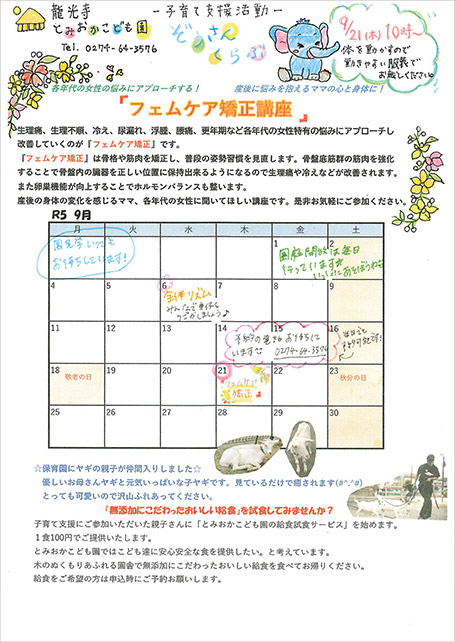 龍光寺
とみおかこども園
Tel. 0274-64-3576
ー子育て支援活動ー
ぞうさん
くらぶ
9/21(木) 10時〜
体を動かすので
動きやすい服装で
お越しください。
各年代の女性の悩みにアプローチする！
産後に悩みを抱えるママの心と身体に！
「フェムケア矯正講座」
生理痛、生理不順、冷え、尿漏れ、浮腫、腰痛、更年期など各年代の女性特有の悩みにアプローチし
改善していくのが『フェムケア矯正』です。
『フェムケア矯正』は骨格や筋肉を矯正し、普段の姿勢習慣を見直します。骨盤底筋群の筋肉を強化
することで骨盤内の臓器を正しい位置に保持出来るようになるので生理痛や冷えなどが改善されます。
また卵巣機能が向上することでホルモンバランスも整います。
産後の身体の変化を感じるママ、各年代の女性に聞いてほしい講座です。是非お気軽にご参加ください。
R5 9月
月 火 水 木 金 土
園見学いつでも
お待ちしています！
1 2
園庭開放は毎日
行っています
4 5 6 7 8 9
全体リズム
みんなで身体を
うごかしましょう♪
11 12 13 14 15 16
予約の電話お待ちして
います 0274-64-3576
18 19 20 21 22 23
敬老の日
フェムケア
矯正
秋分の日
25 26 27 28 29 30
☆保育園にヤギの親子が仲間入りしました☆
優しいお母さんヤギと元気いっぱいな子ヤギです。見ているだけで癒されます(#^.^#)
とっても可愛いので沢山ふれあってください。
「無添加にこだわったおいしい給食」を試食してみませんか？
子育て支援にご参加いただいた親子さんに「とみおかこども園の給食試食サービス」を始めます。
１食100円でご提供いたします。
とみおかこども園ではこども達に安心安全な食を提供したい。と考えています。
木のぬくもりあふれる園舎で無添加にこだわったおいしい給食を食べてお帰りください。
給食をご希望の方は申込時にご予約お願いします。